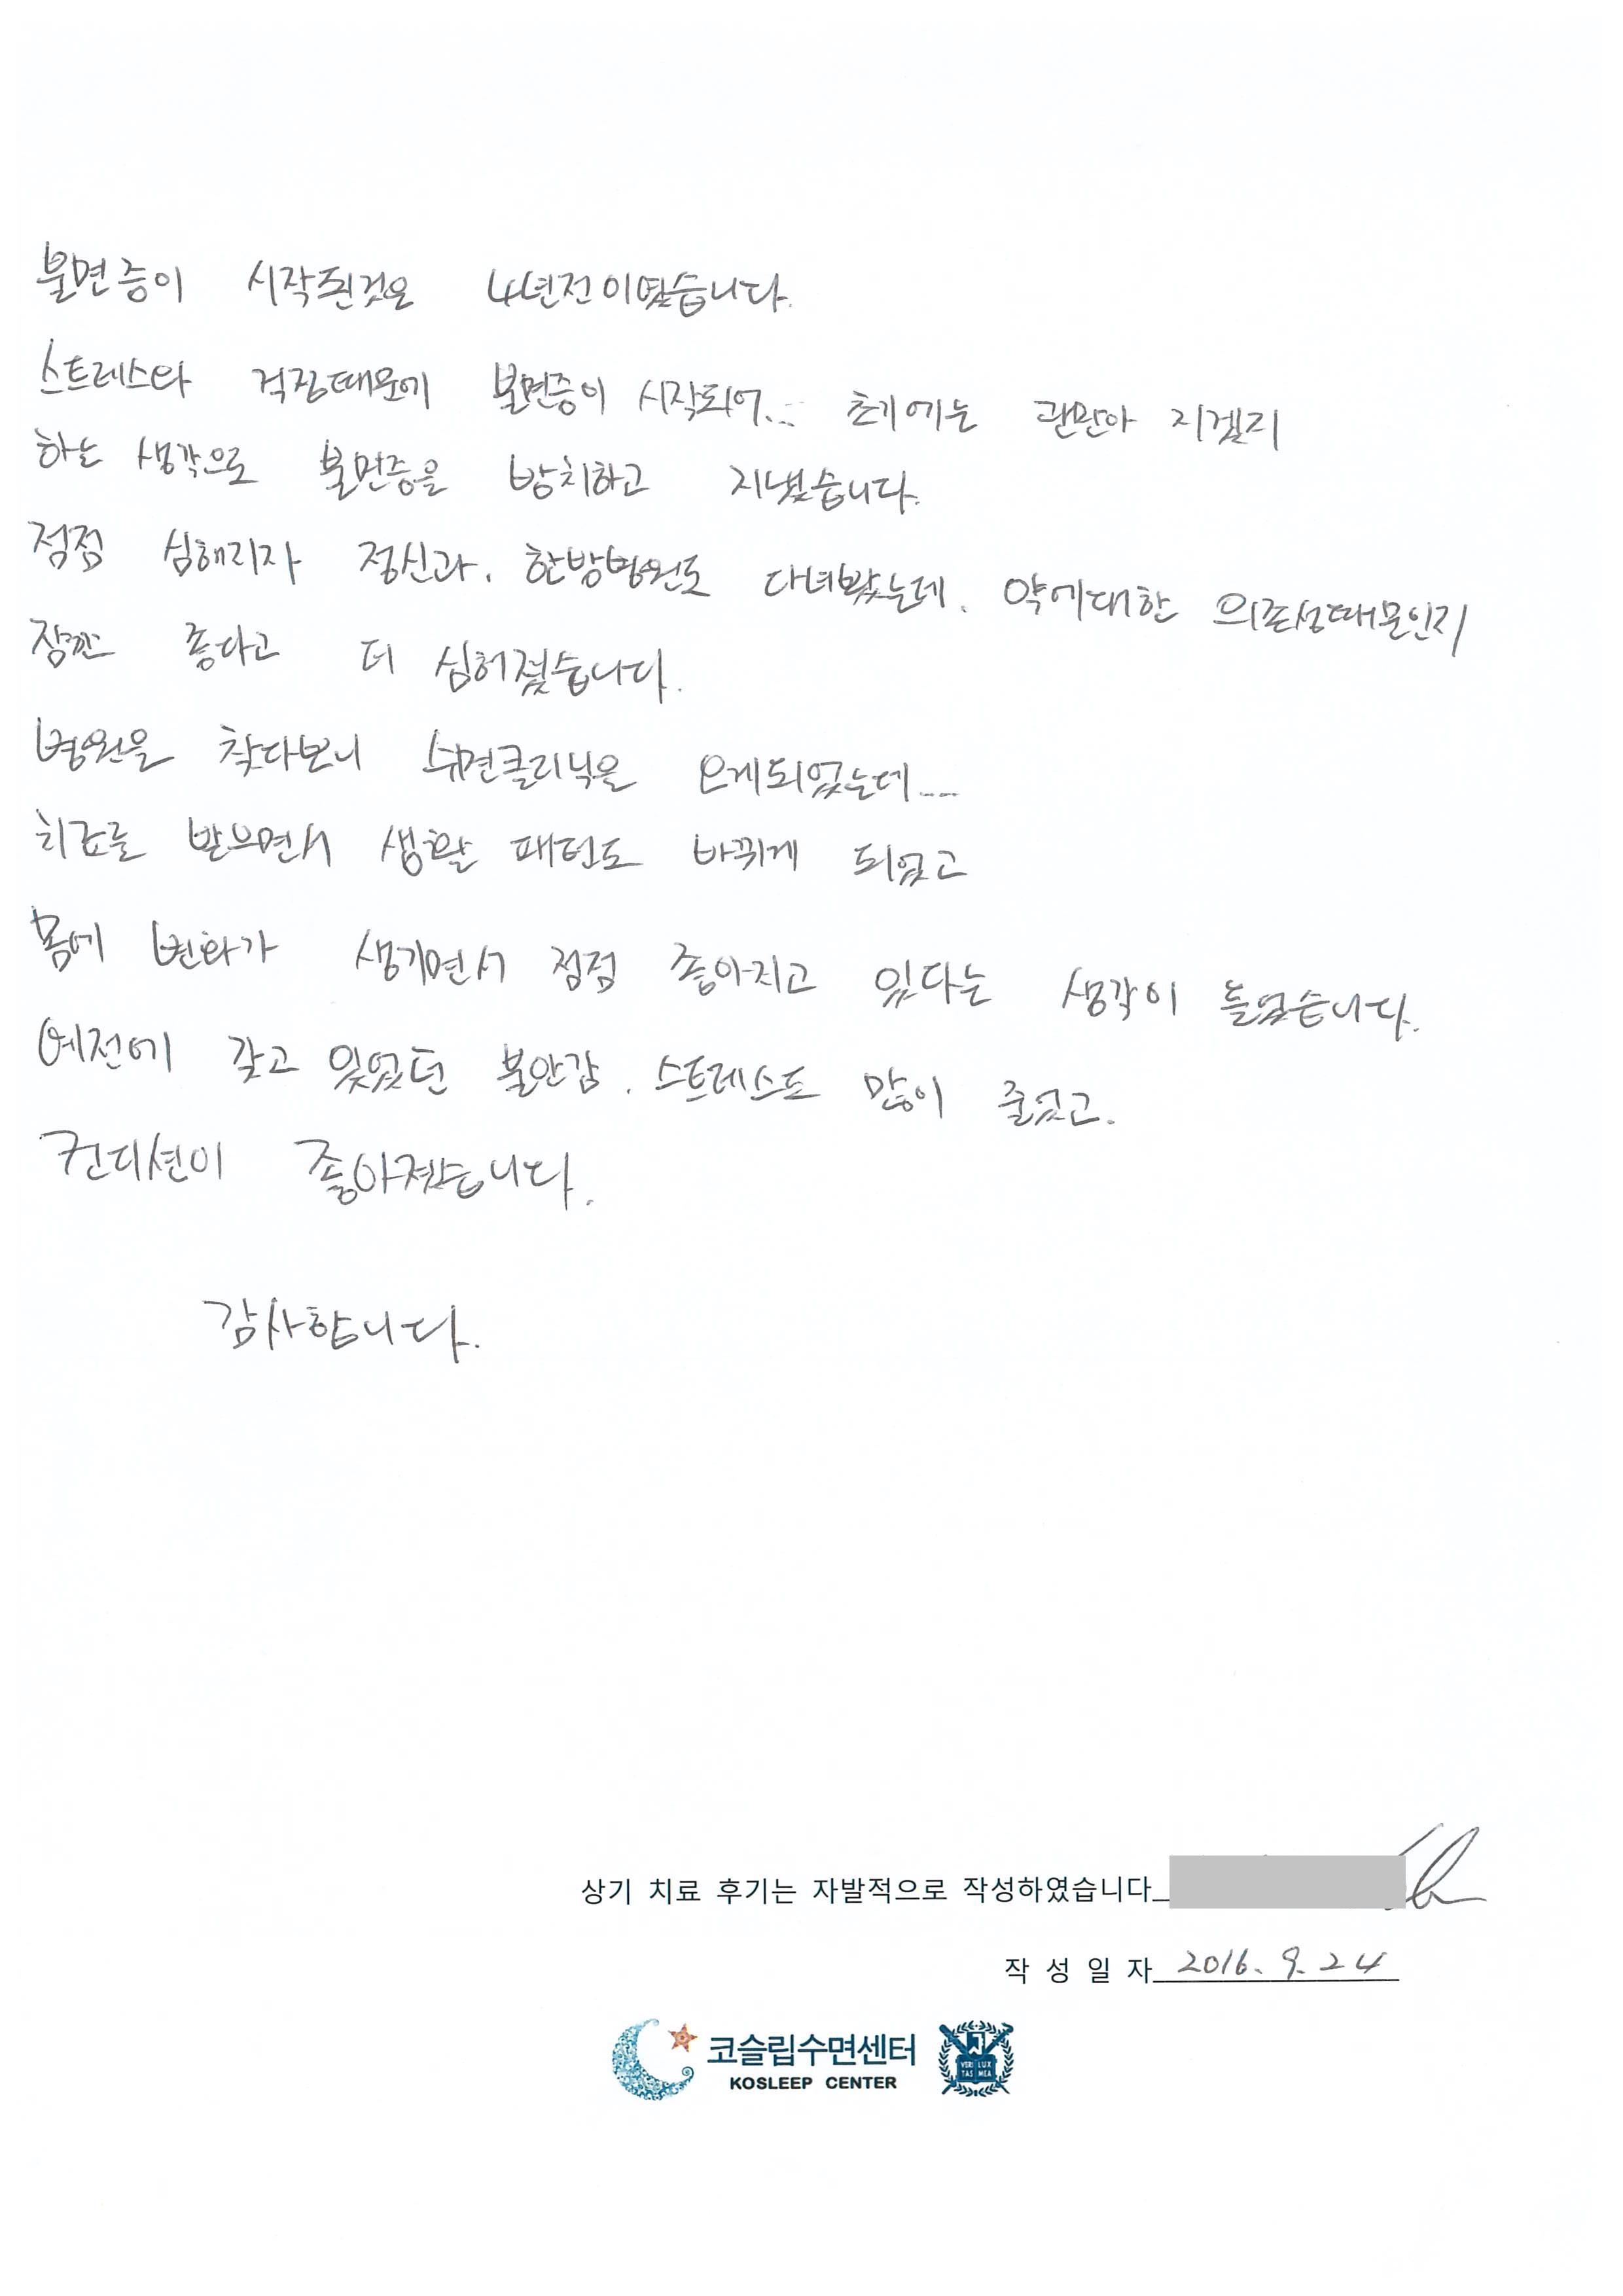 불면증이 시작된것은 4년전이였습니다.
스트레스와 걱정때문에 불면증이 시작되어... 초기에는 괜찮아 지겠지
하는 생각으로 불면증을 방치하고 지냈습니다.
점점 심해지자 정신과, 한방병원도 다녀봤는데, 약에대한 의존성때문인지
잠깐 좋다고 더 심해졌습니다.
병원을 찾다보니 수면클리닉을 오게되었는데....
치료를 받으면서 생활 패턴도 바뀌게 되었고
몸에 변화가 생기면서 점점 좋아지고 있다는 생각이 들었습니다.
예전에 갖고 있었던 불안감, 스트레스도 많이 줄었고.
컨디션이 좋아졌습니다.
감사합니다.
상기 치료 후기는 자발적으로 작성하였습니다
작 성 일 자 2016. 9. 24
코슬립수면센터
KOSLEEP CENTER
VERI LUX
TAS MEA